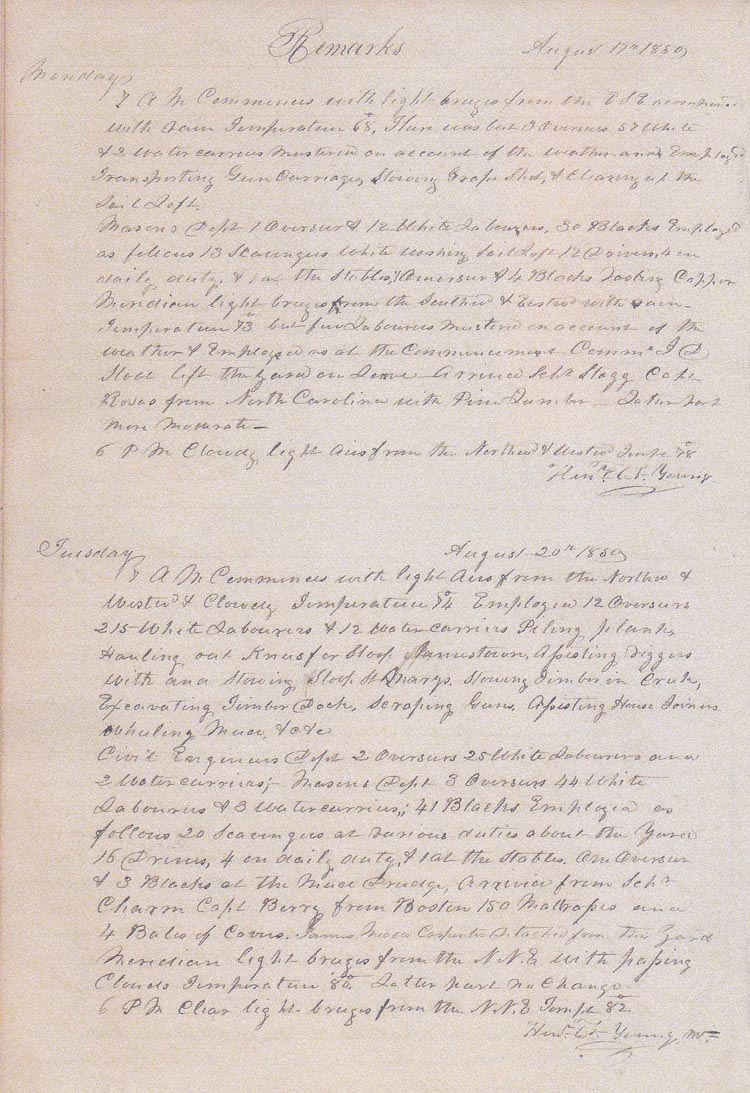 Remarks August 19th 1850
Monday
7 A M Commences with light brezes from the E S E
with rain Temperature 68°, There was but 3 Oversers 57 White
& 2 Water carriers Mustered on account of the weather and Employed
Transporting Gun Carriages, Stowing Grape Shot, & Clearing out the
Sail Loft.
Masons Dept 1 Overser & 12 White Labourers, 30 Blacks Employed
as follows 13 Scavengers White Washing Sail Loft 12 Drivers, 4 on
daily duty, & 1 at the Stables, 1 Overser & 4 Blacks Copper
Meridian light brezes from the Southd & Eastwd with rain
Temperature 73° but few Labourers Mustered on account of the
weather & Employed as at the Commencement Comme
left the yard on Leave Arrived Schr Stagg Capt
from North Carolina with Pine Lumber Latter part
More Moderate
6 P M Clowdy light Airs from the Northwd & Westwd Tempr 78°
Young
Tuesday August 20th 1850
7 A M Commences with light Airs from the Northwd &
Westwd & Clowdy Temperature 74° Employed 12 Oversers
215 White Labourers & 12 Water Carriers Piling plank,
Hauling out Knees for Sloop Jamestown, Assisting Riggers
with and Stowing Sloop St Marys. Stowing Timber in Creek,
Excavating Timber Dock, Scraping Guns, Assisting House Joiners
Whealing Mud, &c &c
Civil Engineers Dept 2 Oversers 25 White Labourers and
2 Water carriers; Masons Dept 3 Oversers 44 White
Labourers & 3 Water carriers; 41 Blacks Employed as
follows 20 Scavengers at various duties about the Yard
16 Drivers, 4 on daily duty, & 1 at the Stables. One Overser
& 3 Blacks at the Mud Drudge, Arrived from Schr
Charm Capt Berry from Boston 150 Mattrasses and
4 Bales of Covers. James Carpenter Detached from this Yard
Meridian light brezes from the N. N. E with passing
Clouds Temperature 80° Latter part no Change
6 P M Clear light brezes from the N. N. E Tempr 82°
Young